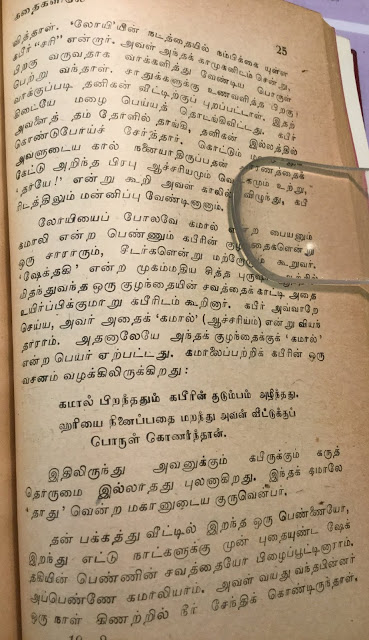 25
பித்தாள். 'லோயி'யின் நடத்தையில் நம்பிக்கை யுள்ள
கபீர் "சரி" என்றார். அவள் அந்தக் காமுகனிடம் சென்று,
பிறகு வருவதாக வாக்களித்து வேண்டிய பொருள்
பெற்று வந்தாள். சாதுக்களுக்கு உணவளித்த பிறகு
வாக்குப்படி தனிகன் வீட்டிற்குப் புறப்பட்டாள். இதற்
கிடையே மழை பெய்யத் தொடங்கிவிட்டது. கபீர்
அவளைத் தம் தோளில் தாங்கி, தனிகன் இல்லத்தில்
கொண்டுபோய்ச் சேர்த்தார். கொட்டும்
அவளுடைய கால் நனையாதிருப்பதன்
கேட்டு அறிந்த பிரபு ஆச்சரியமும் உற்று,
'தாயே!' என்று கூறி அவள் காலில் விழுந்து, கபீ
ரிடத்திலும் மன்னிப்பு வேண்டினானாம்.
லோயியைப் போலவே கமால் என்ற பையனும்
கமாலி என்ற பெண்ணும் கபீரின் குழந்தைகளென்று
ஒரு சாராரும், சீடர்களென்று மற்றோரும் கூறுவர்.
'ஷேக்தகி' என்ற முகம்மதிய சித்த புருஷர்
மிதந்துவந்த ஒரு குழந்தையின் சவத்தைக் காட்டி அதை
உயிர்ப்பிக்குமாறு கபீரிடம் கூறினார். கபீர் அவ்வாறே
செய்ய, அவர் அதைக் 'கமால்' (ஆச்சரியம்) என்று வியந்
தாராம். அதனாலேயே அந்தக் குழந்தைக்குக் 'கமால்'
என்ற பெயர் ஏற்பட்டது. கமாலைப்பற்றிக் கபீரின் ஒரு
வசனம் வழக்கிலிருக்கிறது :
கமால் பிறந்ததும் கபீரின் குடும்பம் அழிந்தது.
ஹரியை நினைப்பதை மறந்து அவன் வீட்டுக்குப்
பொருள் கொணர்ந்தான்.
இதிலிருந்து அவனுக்கும் கபீருக்கும் கருத்
தொருமை இல்லாதது புலனாகிறது. இந்தக் கமாலே
'தாது' வென்ற மகானுடைய குருவென்பர்.
தன் பக்கத்து வீட்டில் இறந்த ஒரு பெண்ணையோ,
இறந்து எட்டு நாட்களுக்கு முன் புதையுண்ட ஷேக்
தகியின் பெண்ணின் சவத்தையோ பிழைப்பூட்டினாராம்.
அப்பெண்ணே கமாலியாம். அவள் வயது வந்தபின்னர்
ஒரு நாள் கிணற்றில் நீர் சேந்திக் கொண்டிருந்தாள்.